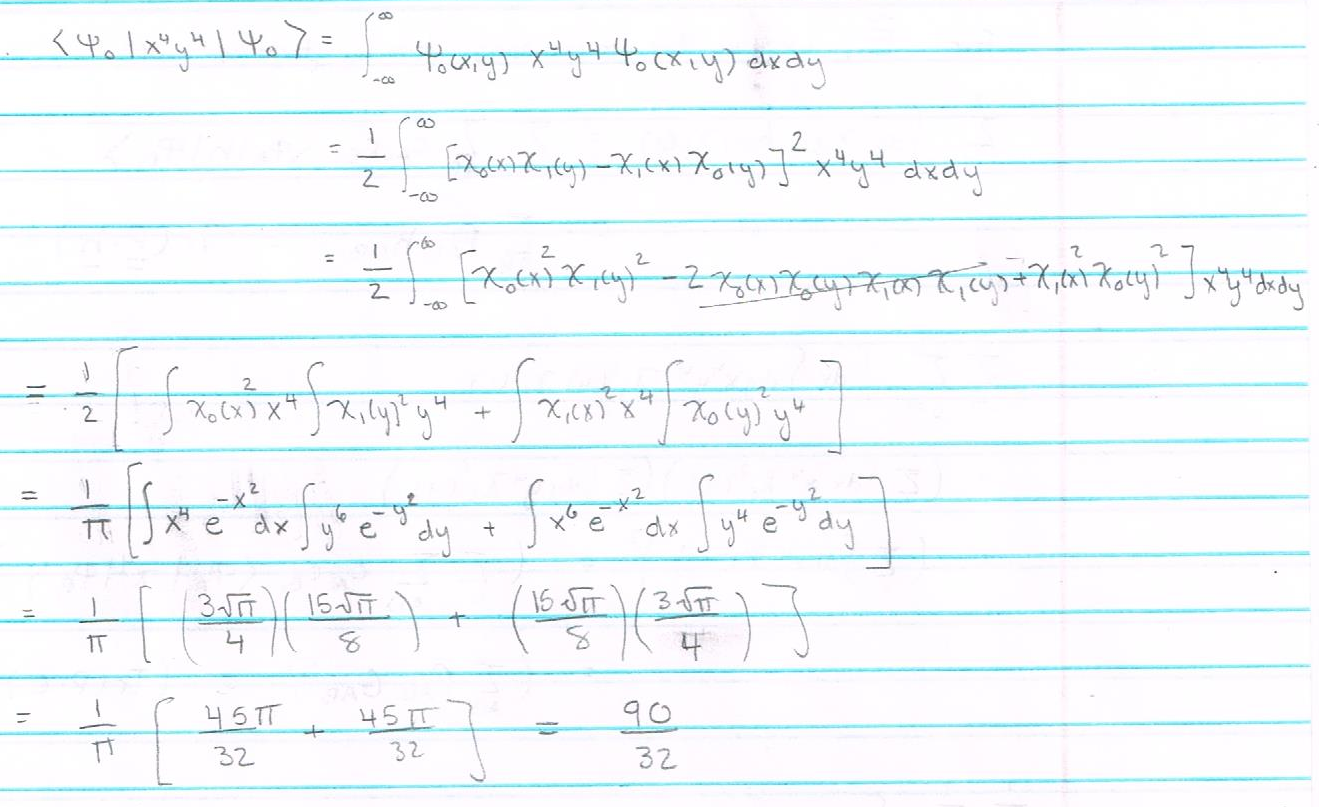 ⟨Ψ₀|x⁴y⁴|Ψ₀⟩ = ∫_{-∞}^{∞} Ψ₀(x,y) x⁴y⁴ Ψ₀(x,y) dxdy
= 1/2 ∫_{-∞}^{∞} [χ₀(x)χ₁(y) − χ₁(x)χ₀(y)]² x⁴y⁴ dxdy
= 1/2 ∫_{-∞}^{∞} [χ₀(x)²χ₁(y)² − 2 χ₀(x)χ₀(y)χ₁(x)χ₁(y) + χ₁(x)²χ₀(y)²] x⁴y⁴dxdy
= 1/2 [∫χ₀(x)²x⁴ ∫χ₁(y)²y⁴ + ∫χ₁(x)²x⁴ ∫χ₀(y)²y⁴]
= 1/π [∫x⁴e^{-x²}dx ∫y⁶e^{-y²}dy + ∫x⁶e^{-x²}dx ∫y⁴e^{-y²}dy]
= 1/π [(3√π/4)(15√π/8) + (15√π/8)(3√π/4)]
= 1/π [45π/32 + 45π/32] = 90/32